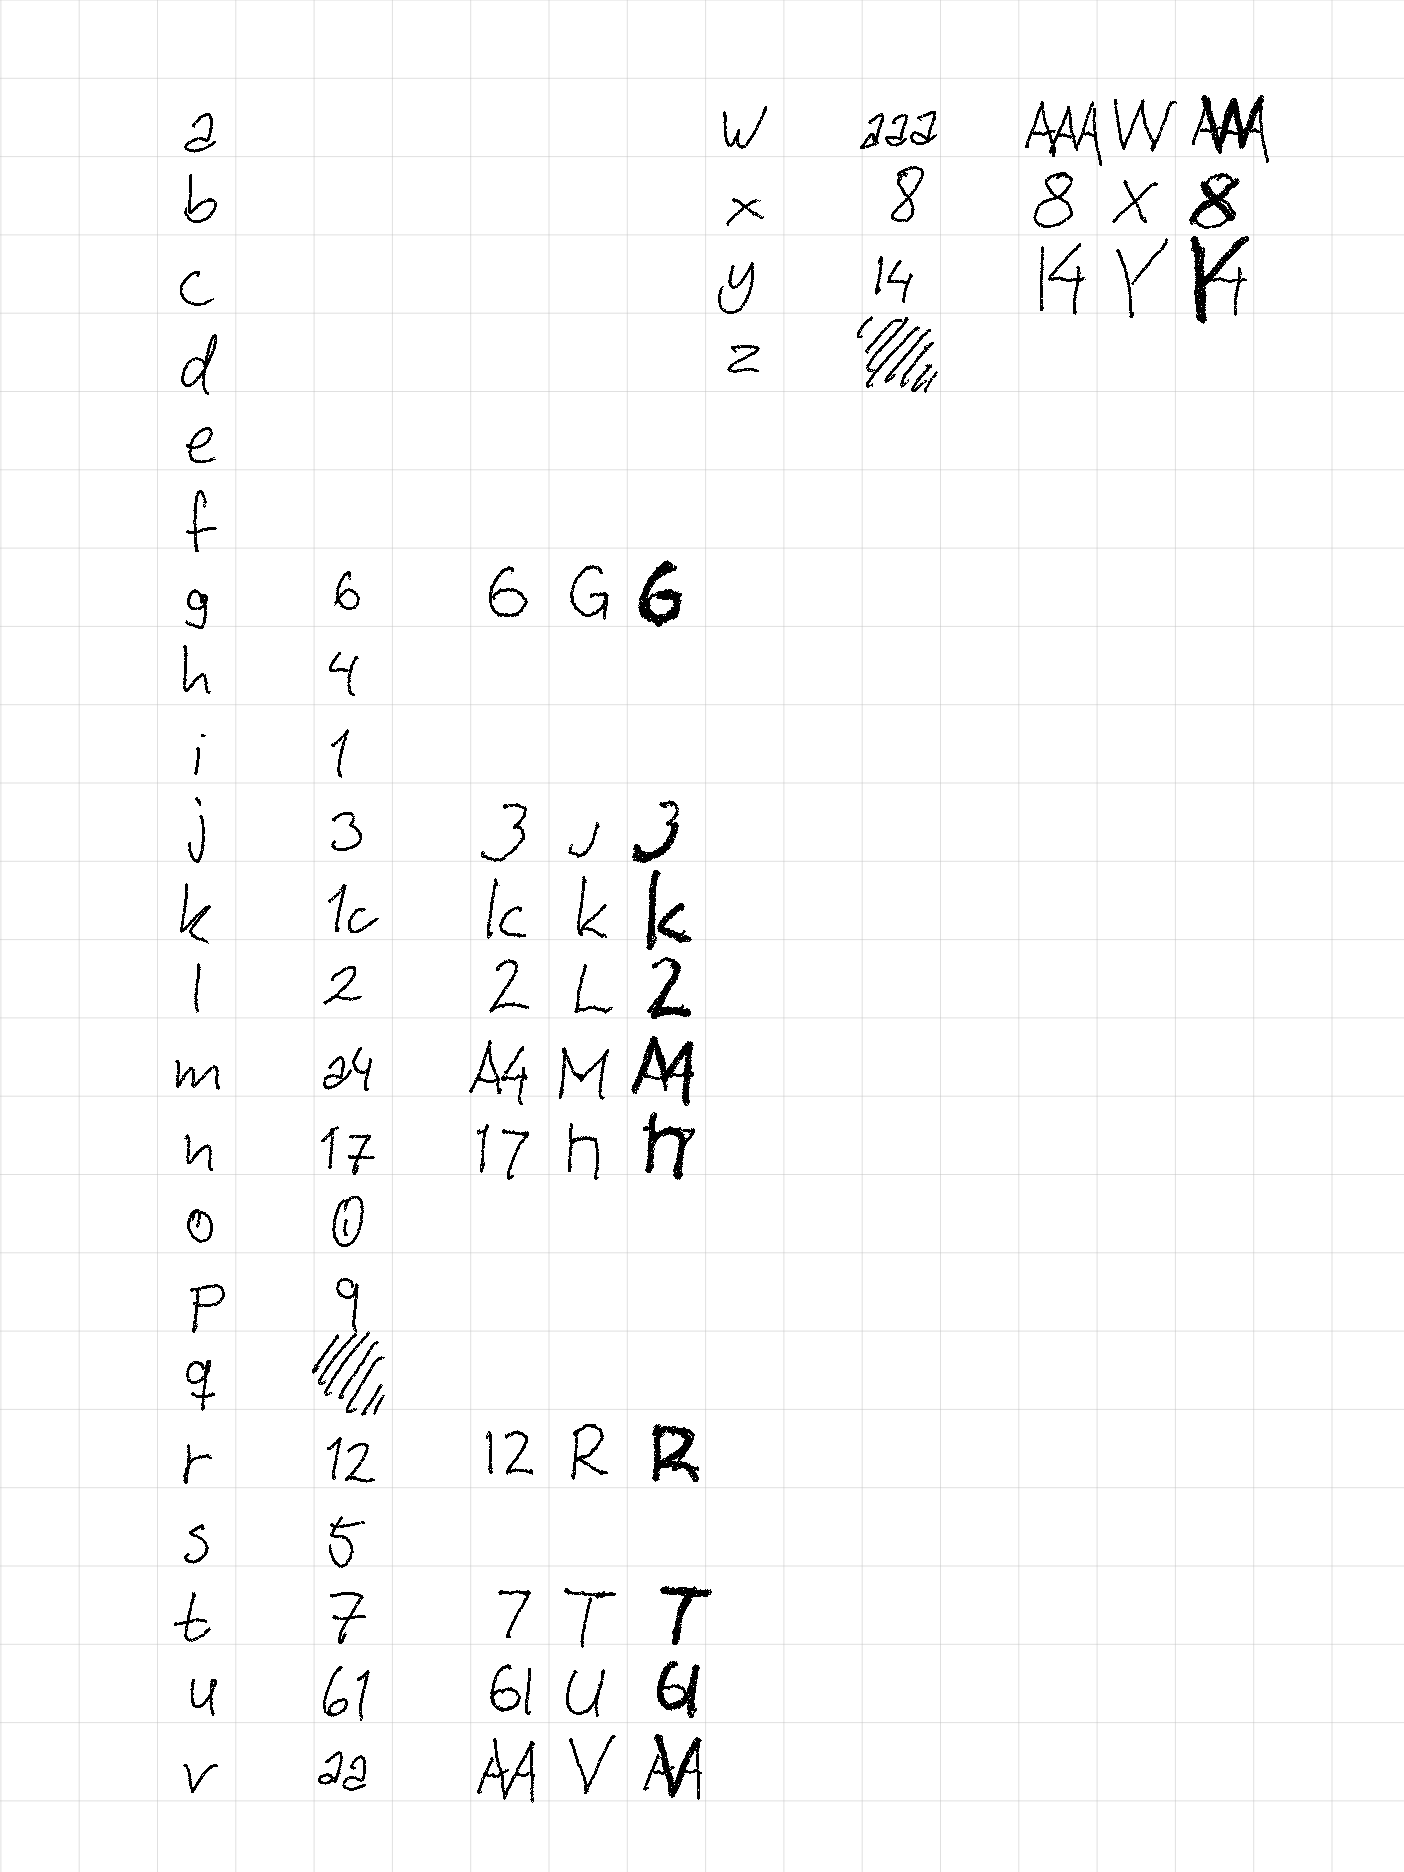 a
b
c
d
e
f
g 6 6 G G
h 4
i 1
j 3 3 J 3
k 1c 1c k k
l 2 2 L 2
m a4 A4 M A4
n 17 17 n n
o 0
p 9
q
r 12 12 R R
s 5
t 7 7 T T
u 61 61 U 61
v aa AA V AA
w aaa AAA W AAA
x 8 8 X 8
y 14 14 Y Y4
z